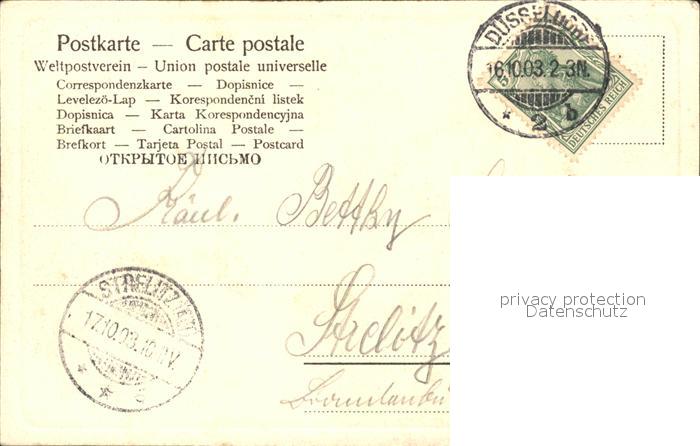 Postkarte — Carte postale
Weltpostverein – Union postale universelle
Correspondenzkarte — Dopisnice —
Levelezö-Lap — Korespondenční listek
Dopisnica — Karta Korespondencyjna
Briefkaart — Cartolina Postale —
Brefkort — Tarjeta Postal — Postcard
ОТКРЫТОЕ ПИСЬМО
DÜSSELDORF
16.10.03.2-3N.
* 2 b
5
DEUTSCHES REICH
Bettky
Strelitz
STRELITZ
17.10.03.10-11V.
privacy protection
Datenschutz